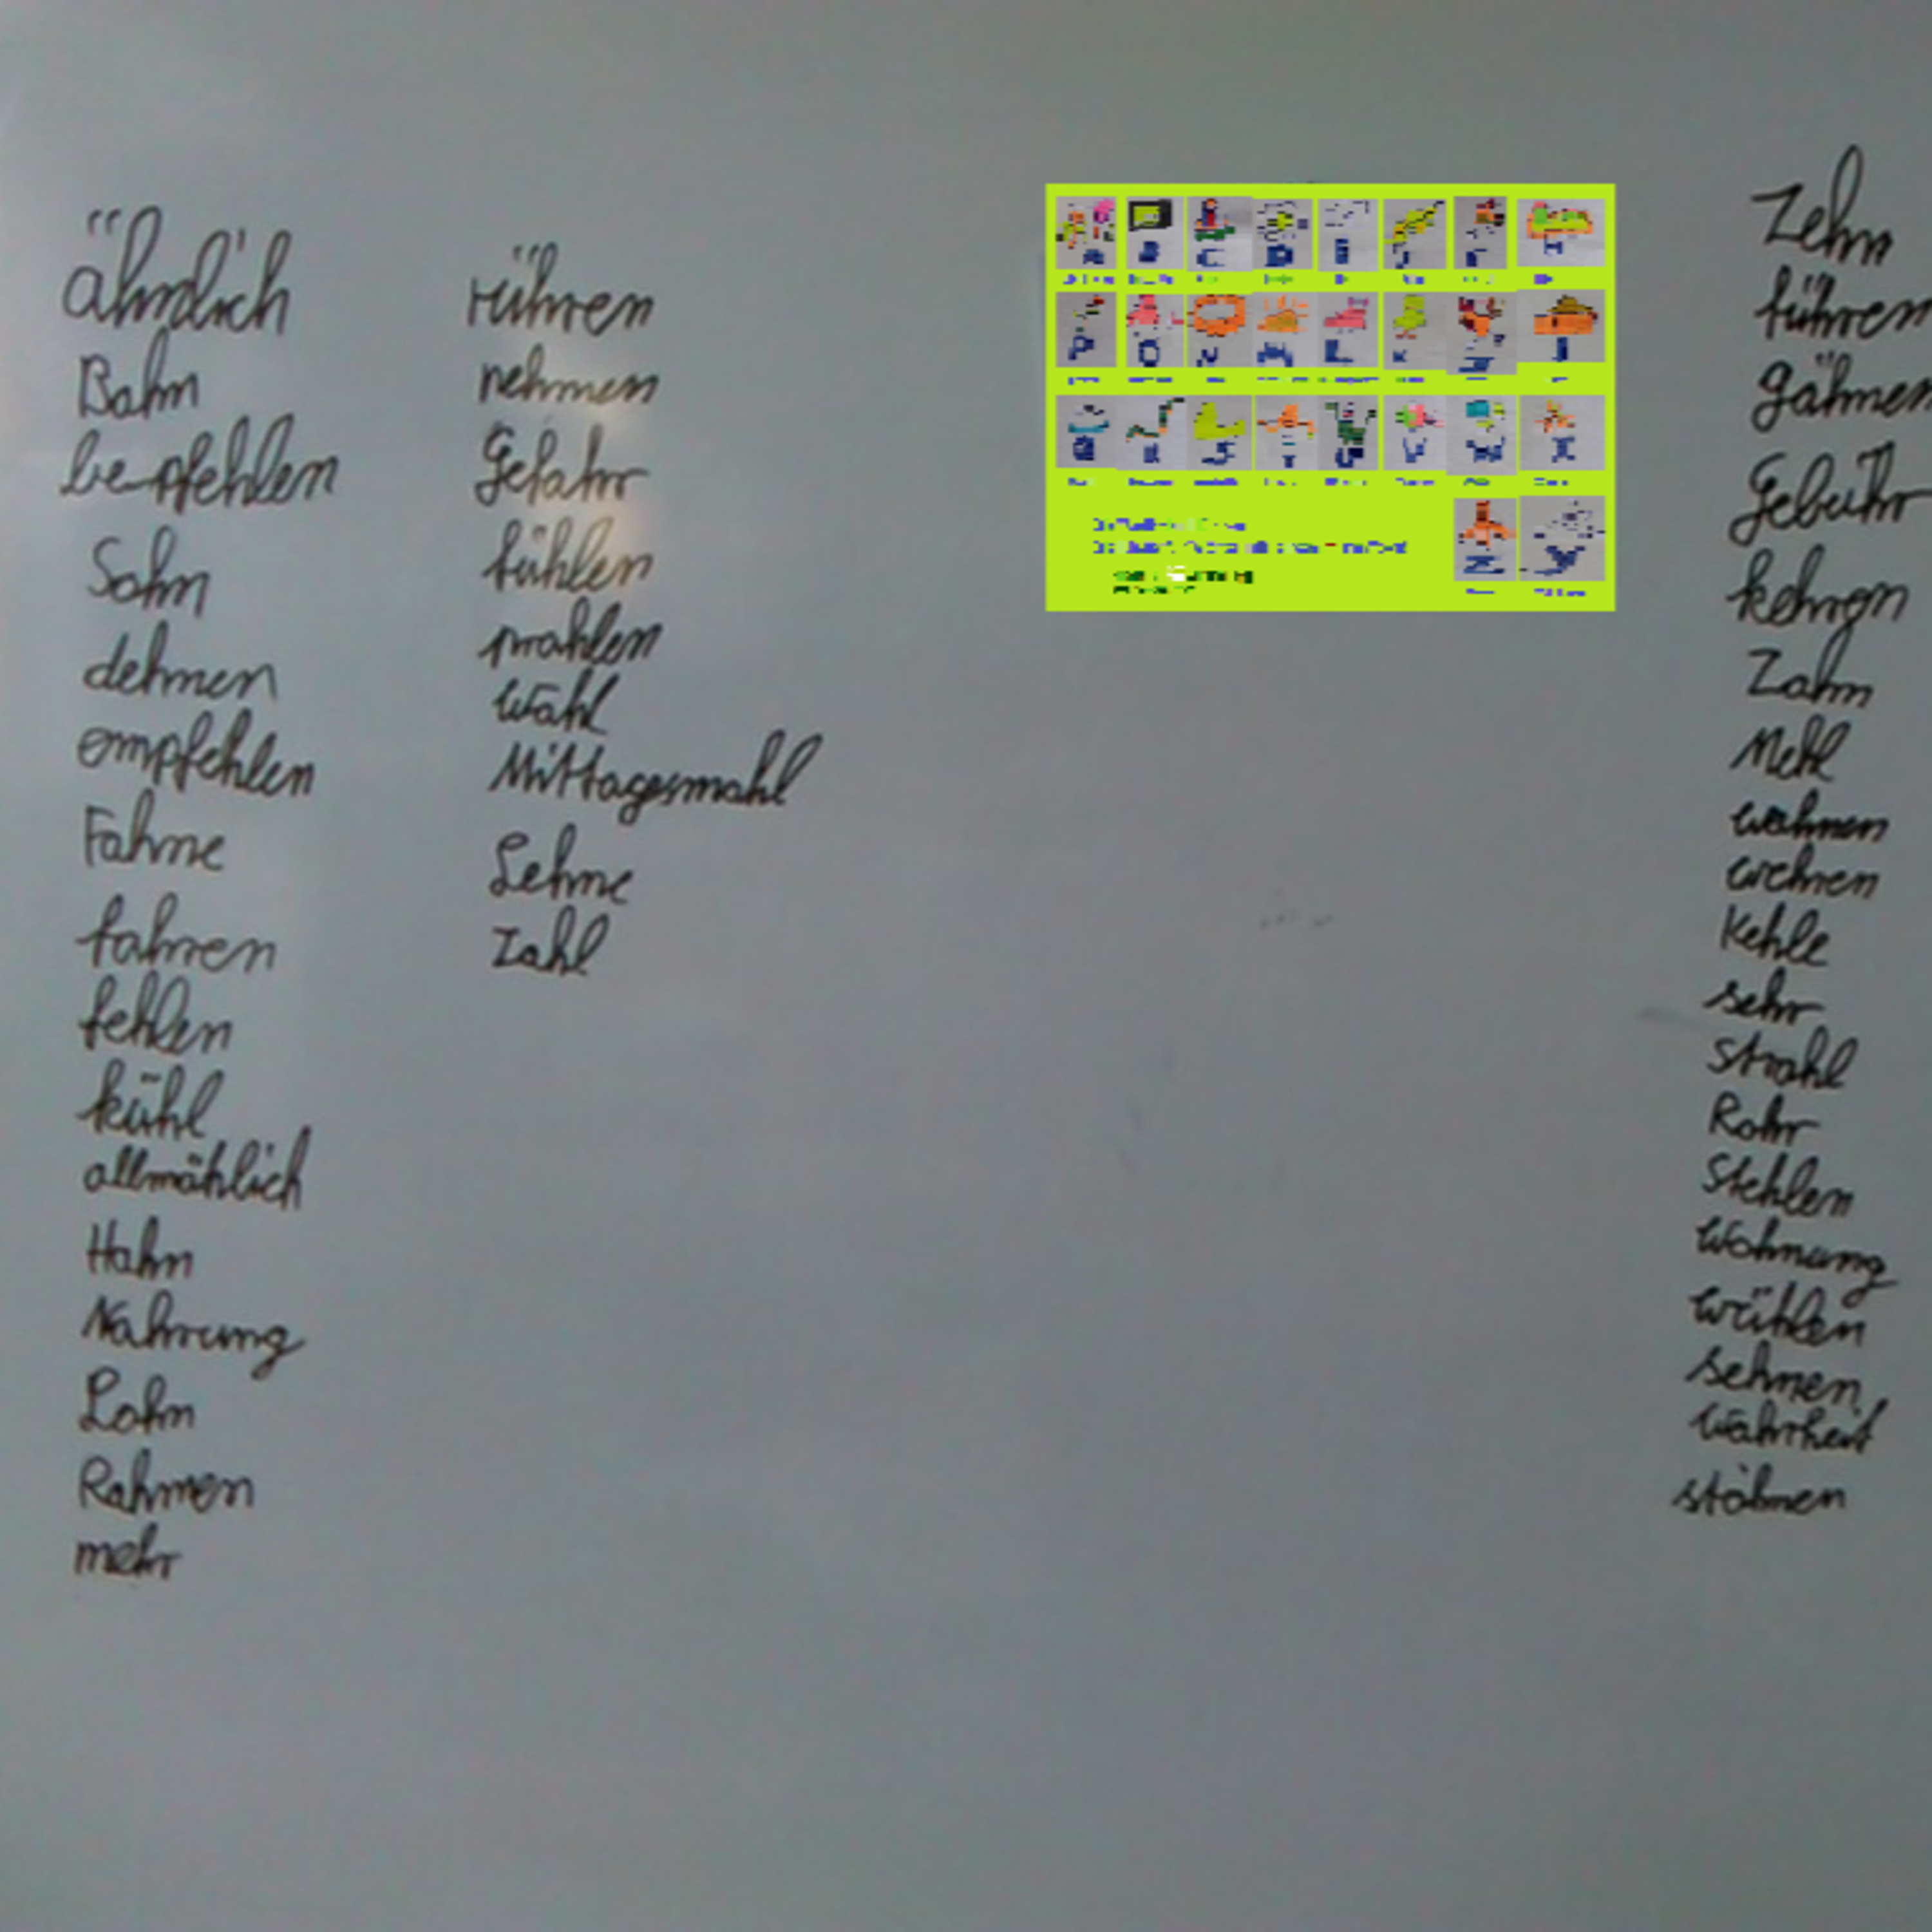 ähnlich
Bahn
be-pfehlen
Sohn
dehnen
empfehlen
Fahne
fahren
fehlen
kühl
allmählich
Hahn
Nahrung
Lohn
Rahmen
mehr
rühren
nehmen
Gefahr
fühlen
prahlen
Wahl
Mittagesmahl
Lehne
Zahl
Zehn
führen
gähnen
Gebühr
Zahn
Mehl
wehren
Kehle
sehr
Strahl
Rohr
Stehlen
Wohnung
wühlen
sehnen
Wahrheit
stöhnen